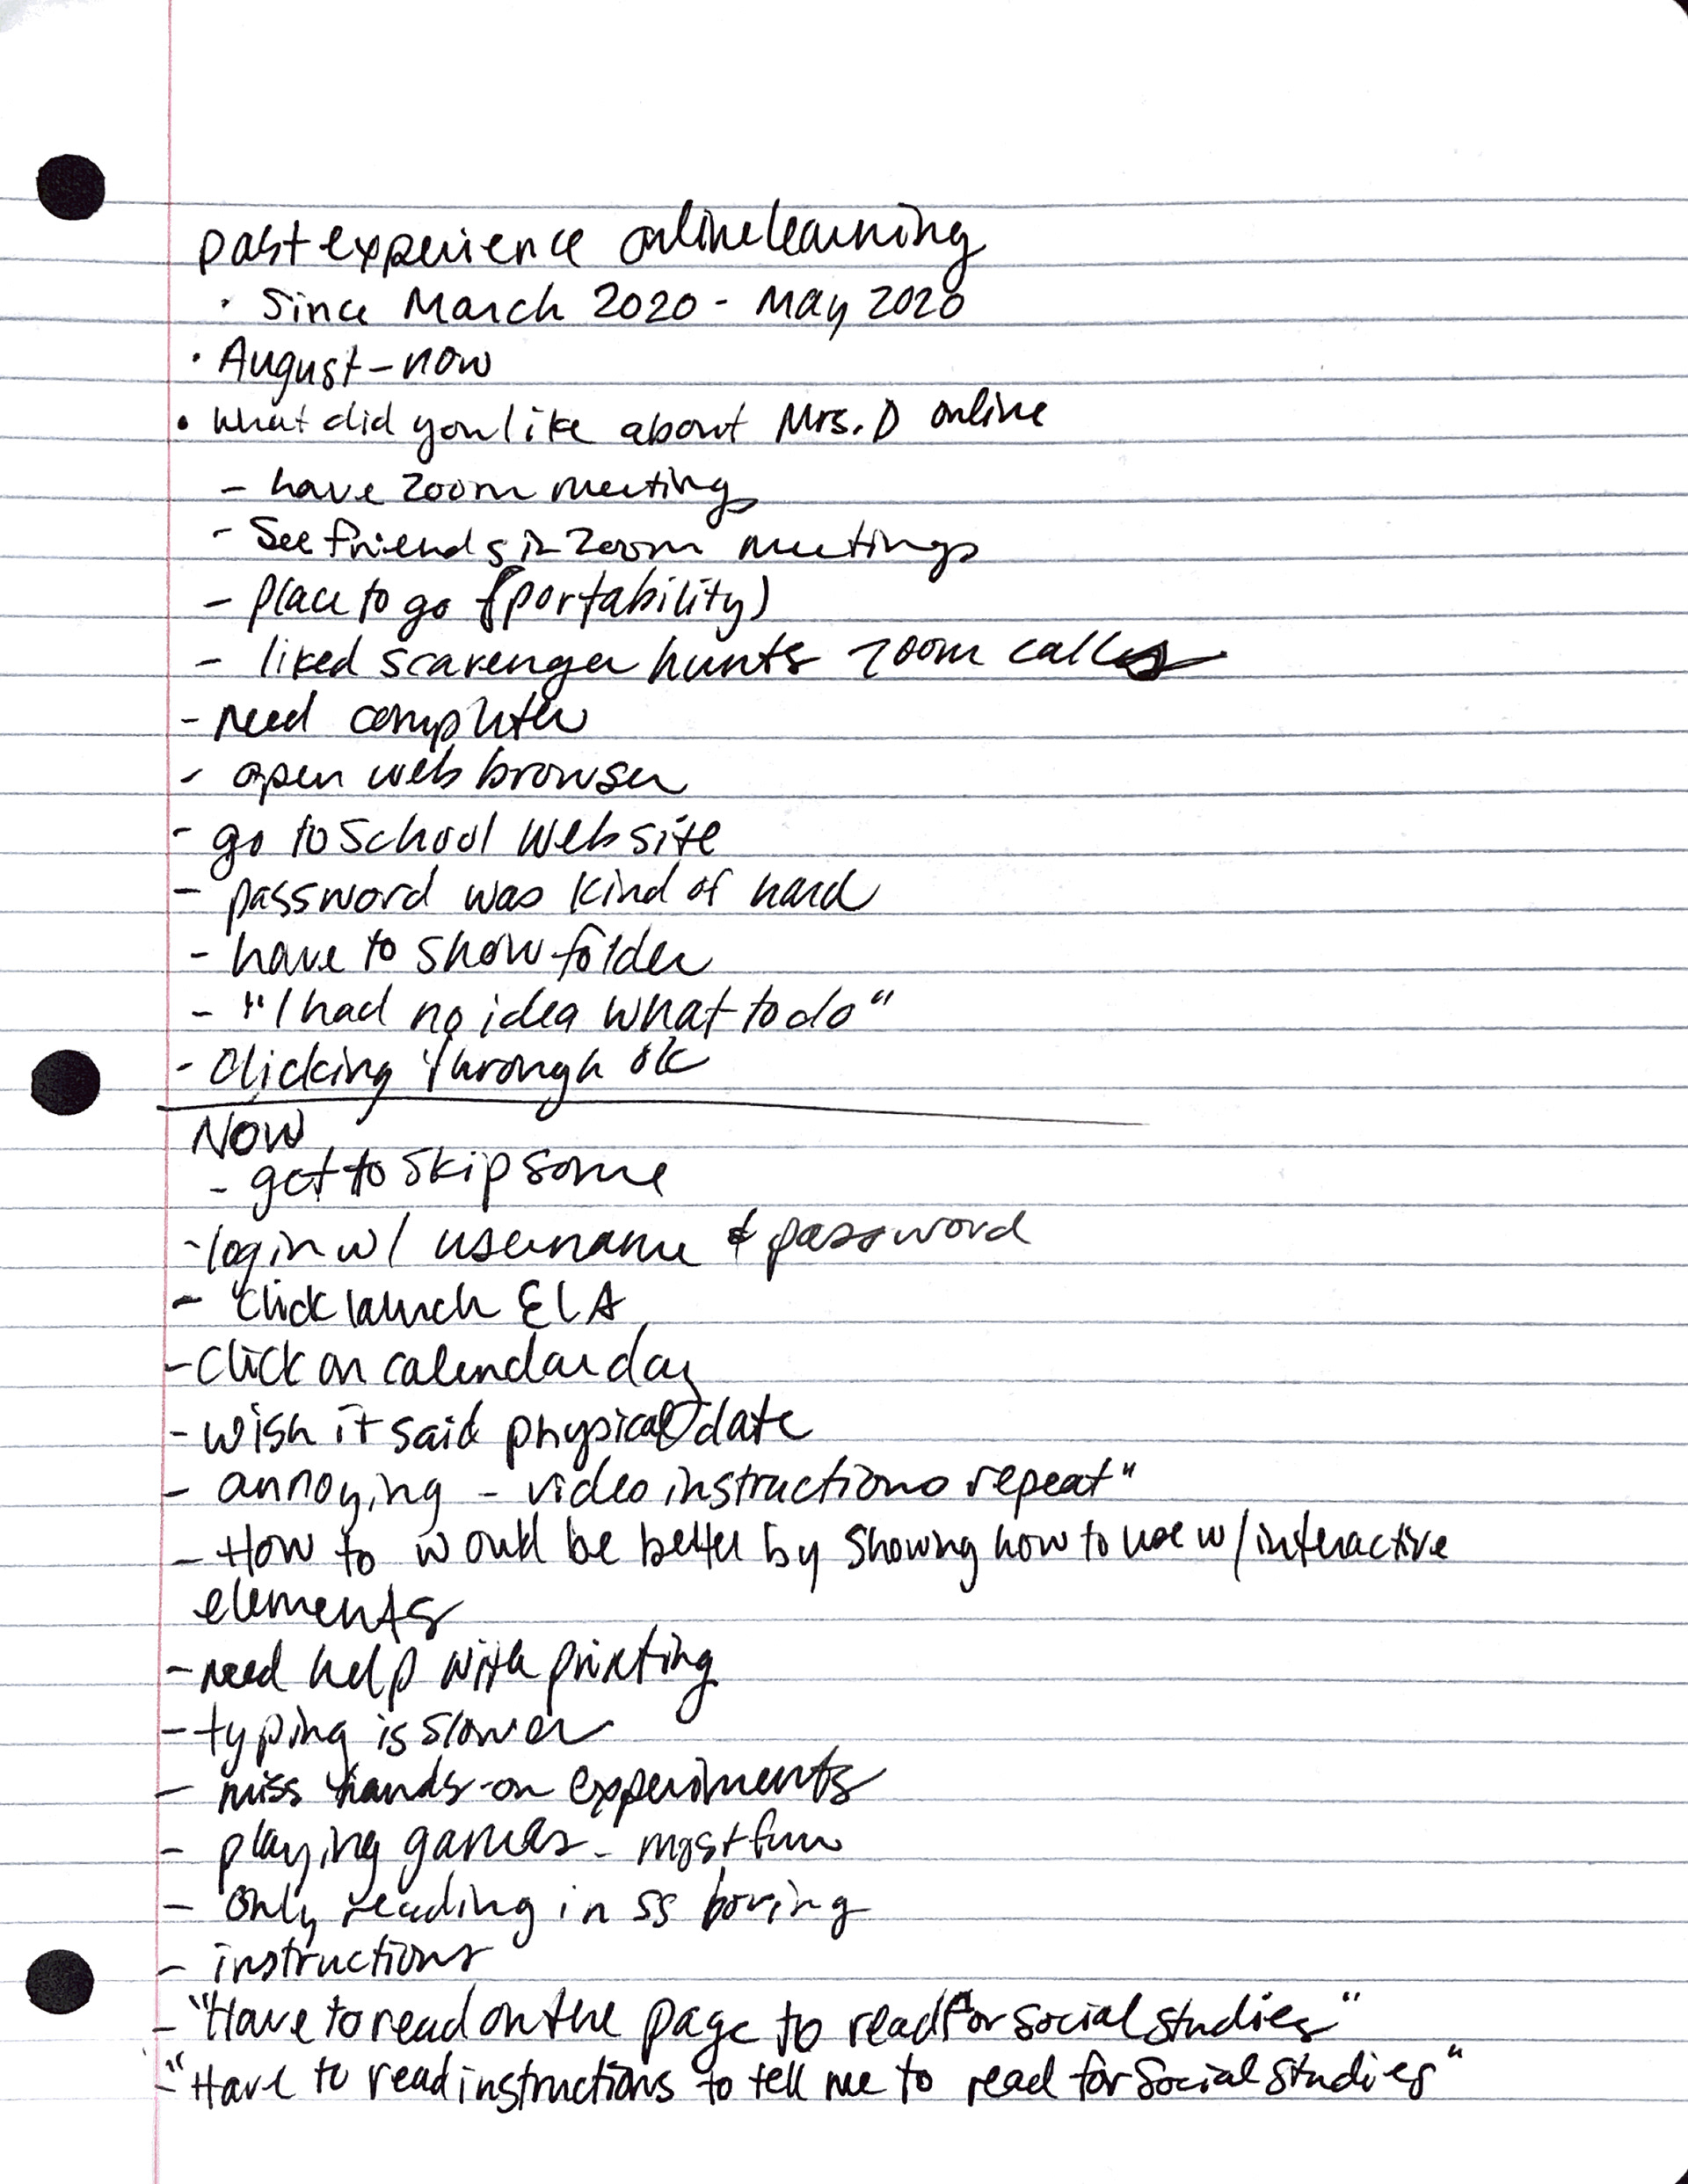 past experience online learning
· Since March 2020 - May 2020
· August - now
• What did you like about Mrs. D online
- have zoom meetings
- See friends in zoom meetings
- place to go (portability)
- liked scavenger hunts zoom calls
- need computer
- open web browser
- go to school website
- password was kind of hard
- have to show folder
- "I had no idea what to do"
- Clicking through ok
Now
- get to skip some
- login w/ username & password
- click launch ELA
- Click on calendar day
- wish it said physical date
- annoying - video instructions repeat"
- How to would be better by showing how to use w/ interactive
elements
- need help with printing
- typing is slower
- miss hands-on experiments
- playing games - most fun
- Only reading in SS boring
- instructions
- "Have to read on the page to read for social studies"
- "Have to read instructions to tell me to read for Social Studies"